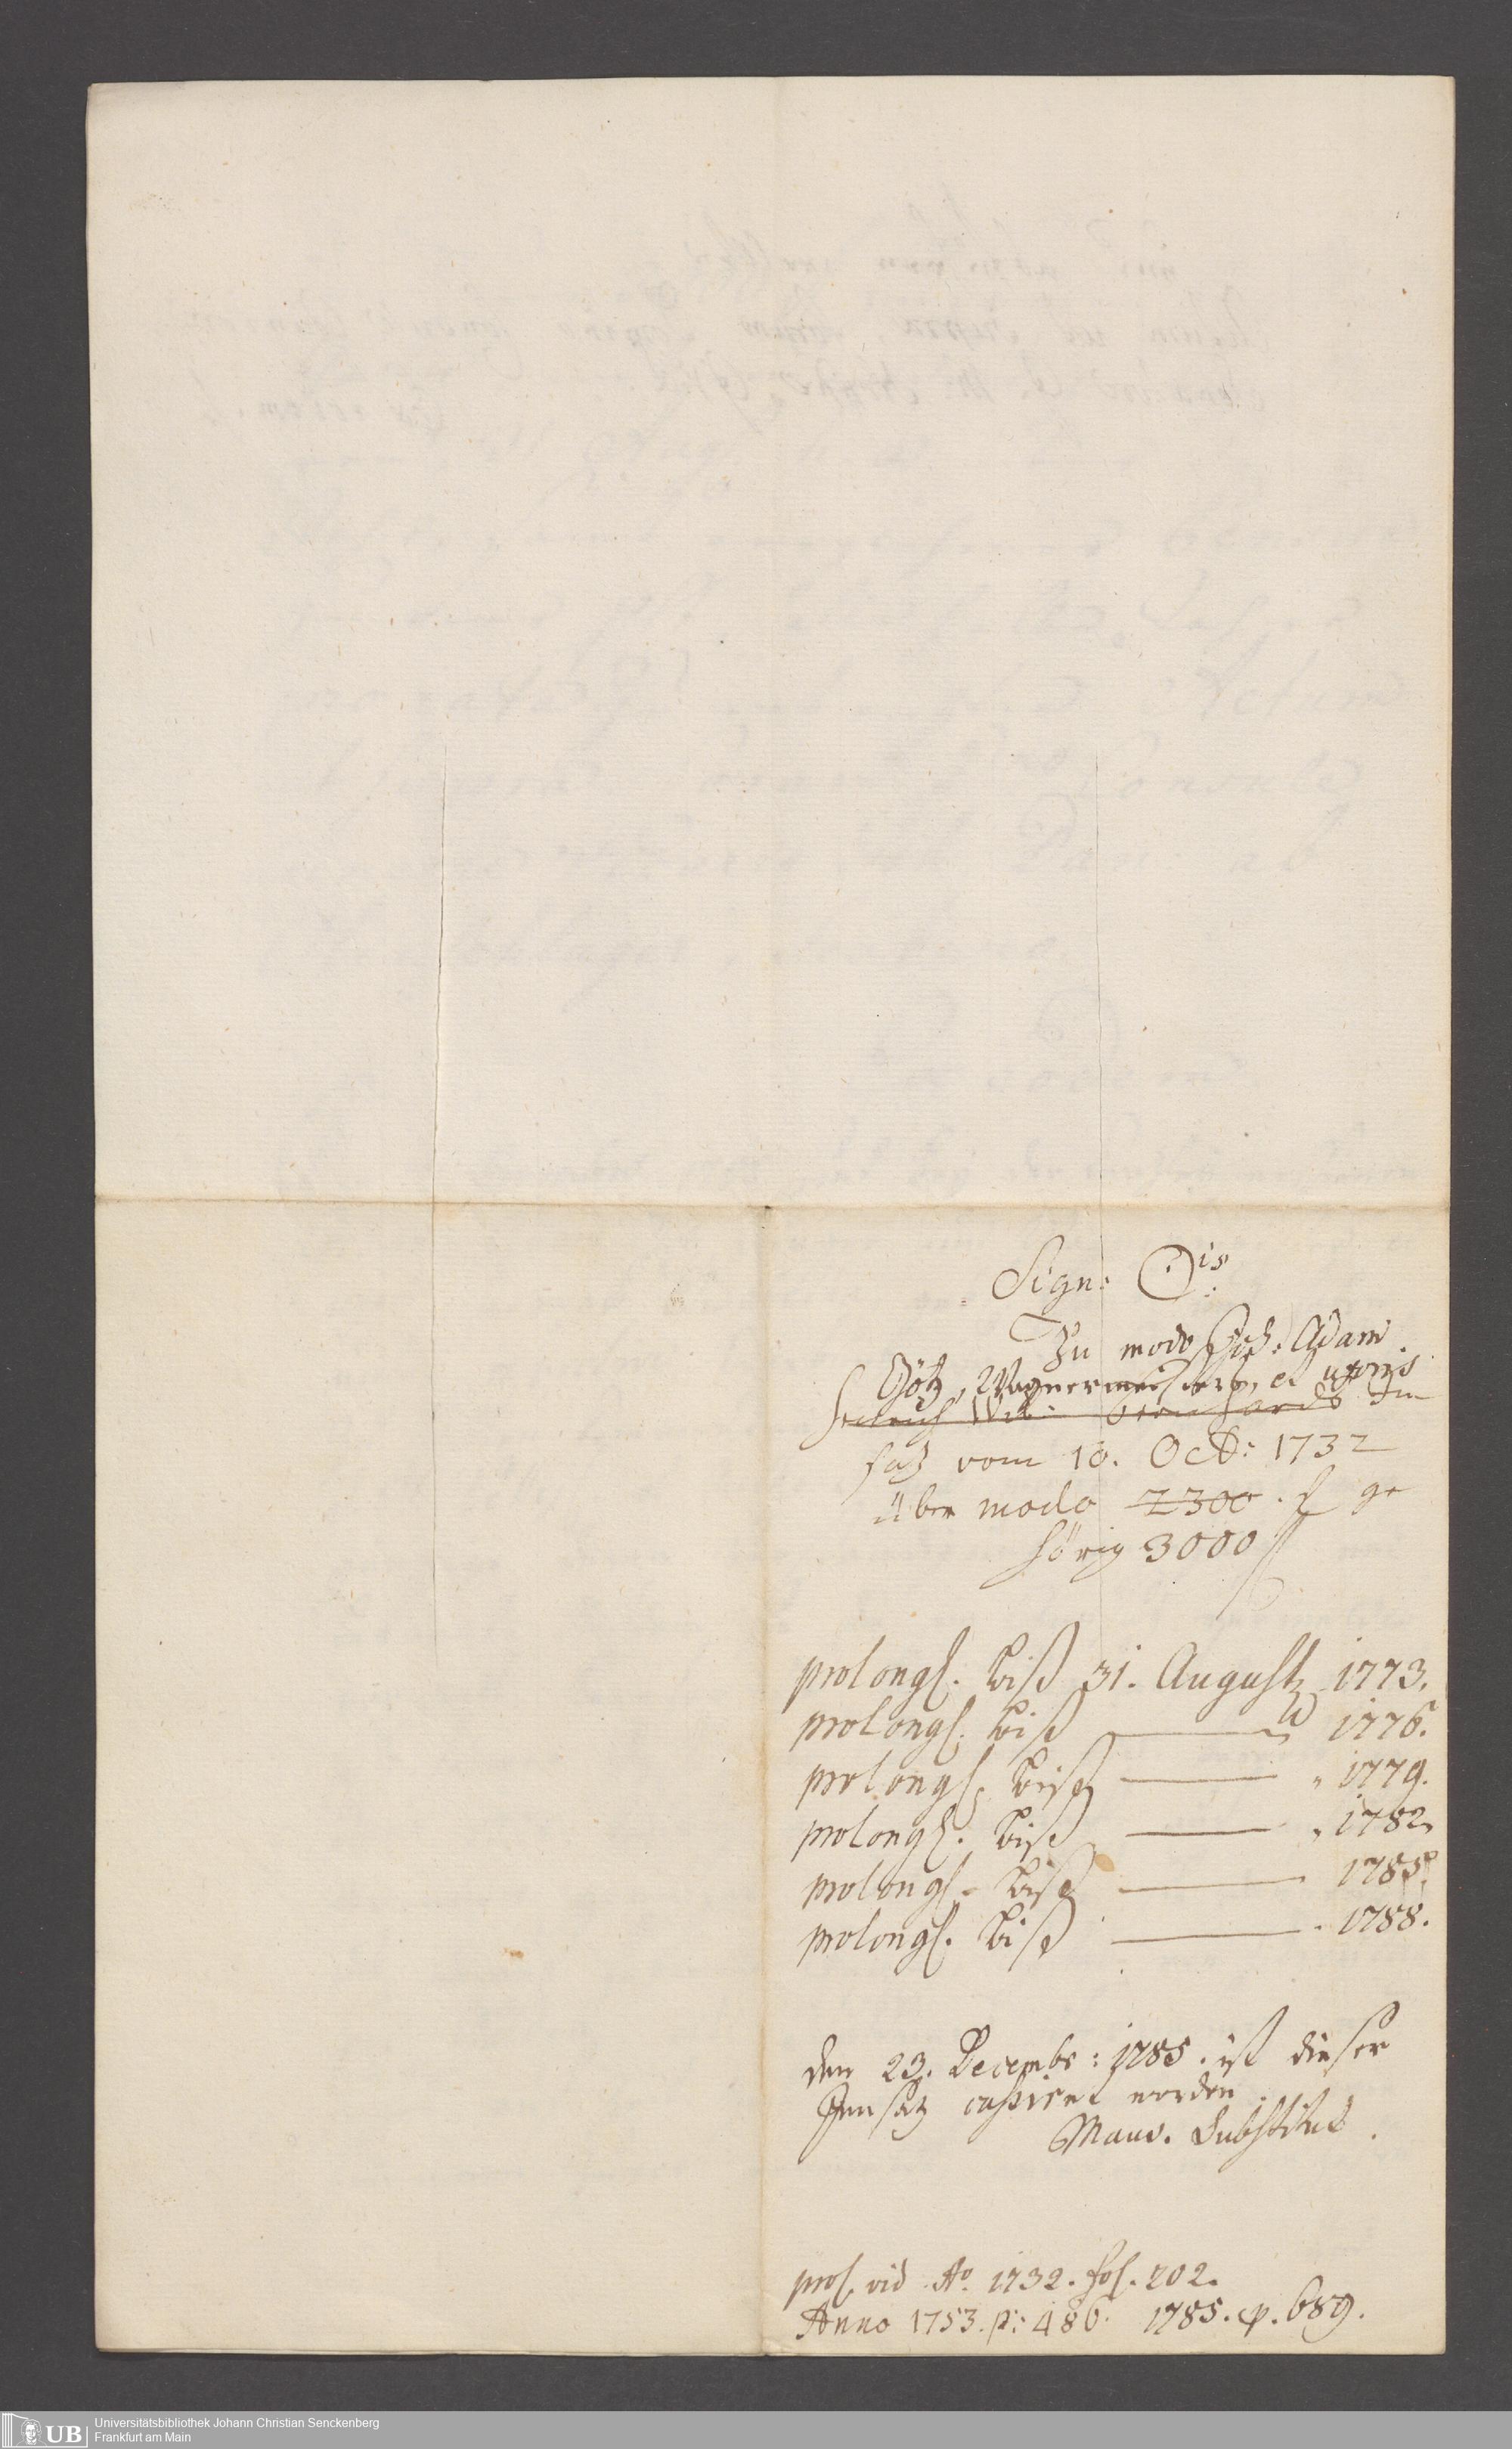 Sign: ☉is.
Zu modo Joh: Adam
Götz, Wagnermeisters, et uxoris
Henrich Wil: Bernhards In
satz vom 10. Oct: 1732
über modo 2300. f ge
hörig 3000 f
prolongl. biß 31. Augusti 1773.
prolongl. biß ——— 1776.
prolongl. biß ——— " 1779.
prolongl. biß ——— " 1782.
prolongl. biß ——— 1785.
prolongl. biß ——— 1788.
den 23. Decembr: 1785. ist dieser
Innsatz cassiret worden.
Substitut.
prol. vid Ao. 1732. fol. 202.
Anno 1753. p: 486. 1785. p. 689.
UB
Universitätsbibliothek Johann Christian Senckenberg
Frankfurt am Main